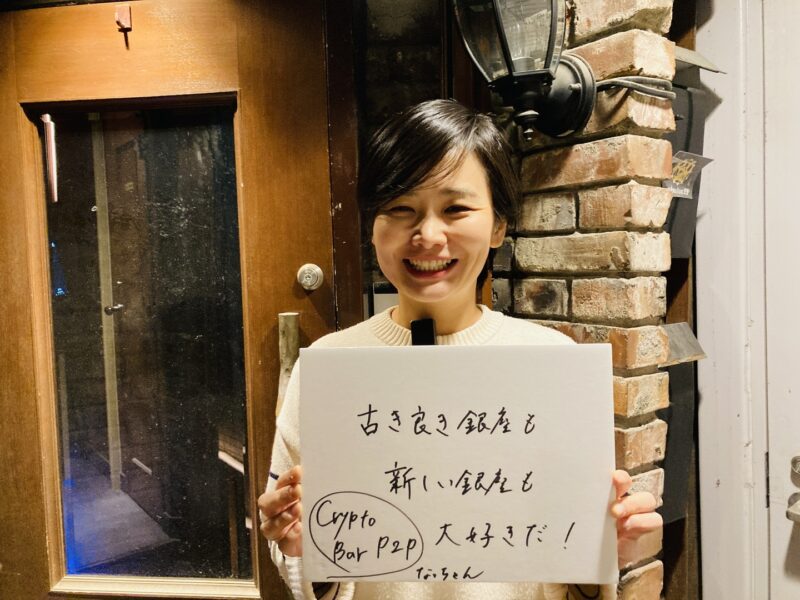 古き良き銀座も
新しい銀座も
大好きだ!
Crypto
Bar P2P
なっちゃん